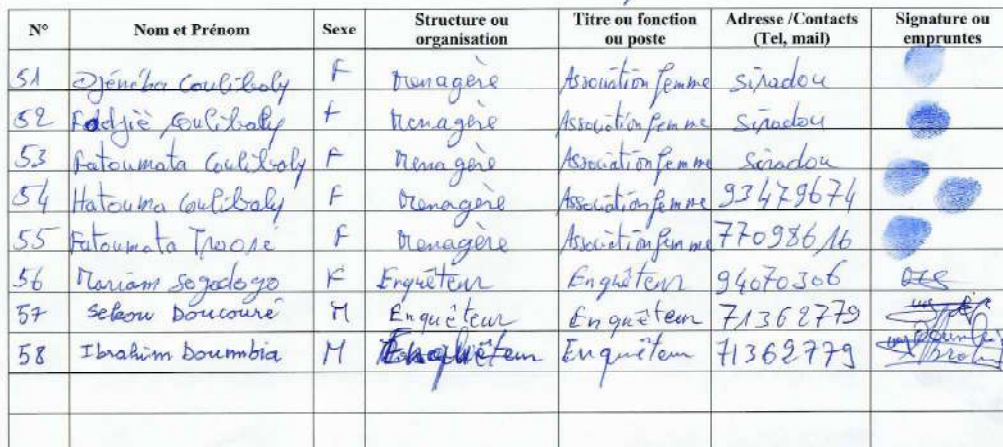 N° Nom et Prénom Sexe Structure ou organisation Titre ou fonction ou poste Adresse /Contacts (Tel, mail) Signature ou empruntes
51 Djénéba Coulibaly F Menagère Association femme Siradou
52 Fadjiè Coulibaly F Menagère Association femme Siradou
53 Fatoumata Coulibaly F Menagère Association femme Siradou
54 Hatouma Coulibaly F Menagère Association femme 93479674
55 Fatoumata Traoré F Menagère Association femme 77098616
56 Mariam Sogodogo F Enquêteur Enquêteur 94070306
57 Sekou Doucouré M Enquêteur Enquêteur 71362779
58 Ibrahim Doumbia M Enquêteur Enquêteur 71362779